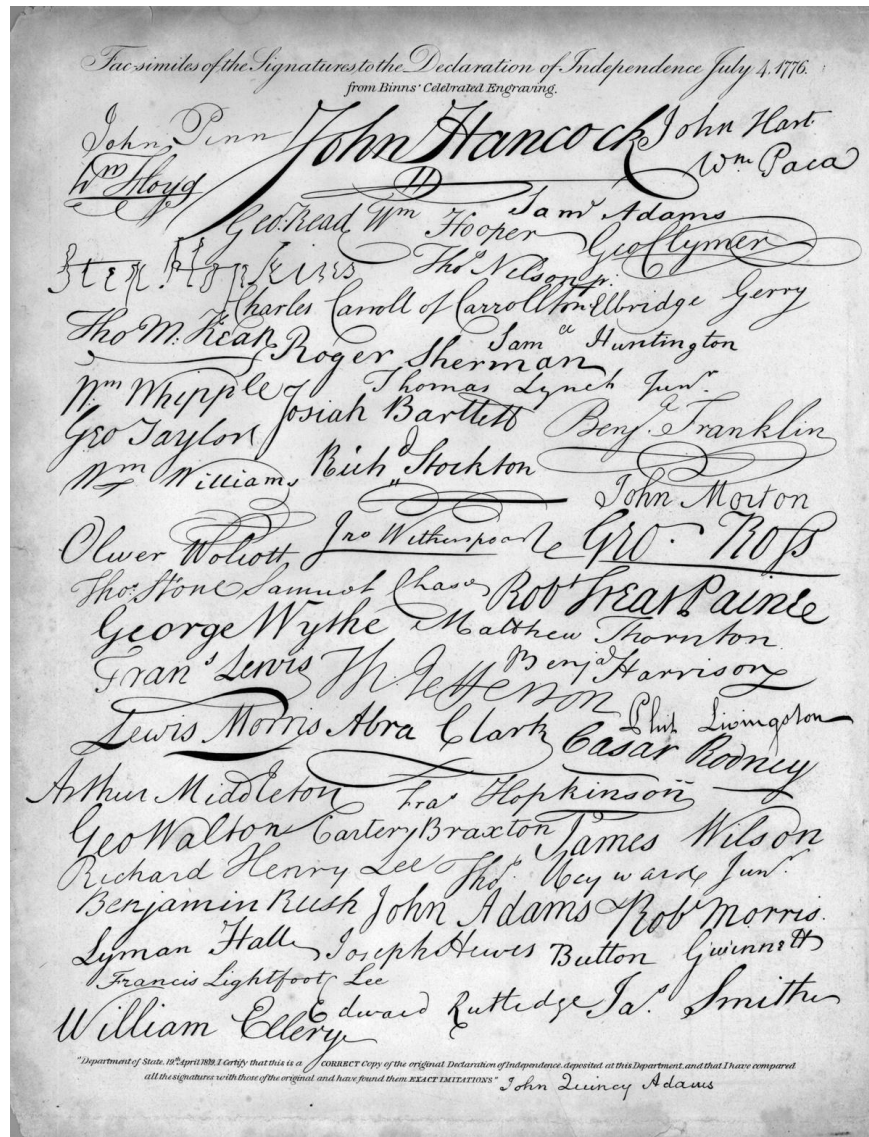 Fac-similes of the Signatures to the Declaration of Independence July 4. 1776.
from Binns' Celebrated Engraving.
John Penn John Hancock John Hart
Wm Floyd Wm Paca
Geo. Read Wm Hooper Saml Adams
Geo Clymer
Step. Hopkins Thos Nelson jr.
Charles Carroll of Carrollton Elbridge Gerry
Tho M: Kean Roger Sherman Saml Huntington
Wm Whipple Thomas Lynch Junr.
Josiah Bartlett Benj. Franklin
Geo Taylor
Wm Williams Richd Stockton
John Morton
Oliver Wolcott Jno Witherspoon Geo. Ross
Thos. Stone Samuel Chase Robt Treat Paine
George Wythe Matthew Thornton
Frans Lewis Th Jefferson Benja Harrison
Lewis Morris Abra Clark Phil. Livingston
Cæsar Rodney
Arthur Middleton Fras Hopkinson
Geo Walton Carter Braxton James Wilson
Richard Henry Lee Thos. Heyward Junr.
Benjamin Rush John Adams Robt Morris.
Lyman Hall Joseph Hewes Button Gwinnett
Francis Lightfoot Lee
William Ellery Edward Rutledge Jas. Smith
"Department of State, 19th April 1819. I Certify that this is a CORRECT Copy of the original Declaration of Independence, deposited at this Department, and that I have compared
all the signatures with those of the original and have found them EXACT IMITATIONS." John Quincy Adams